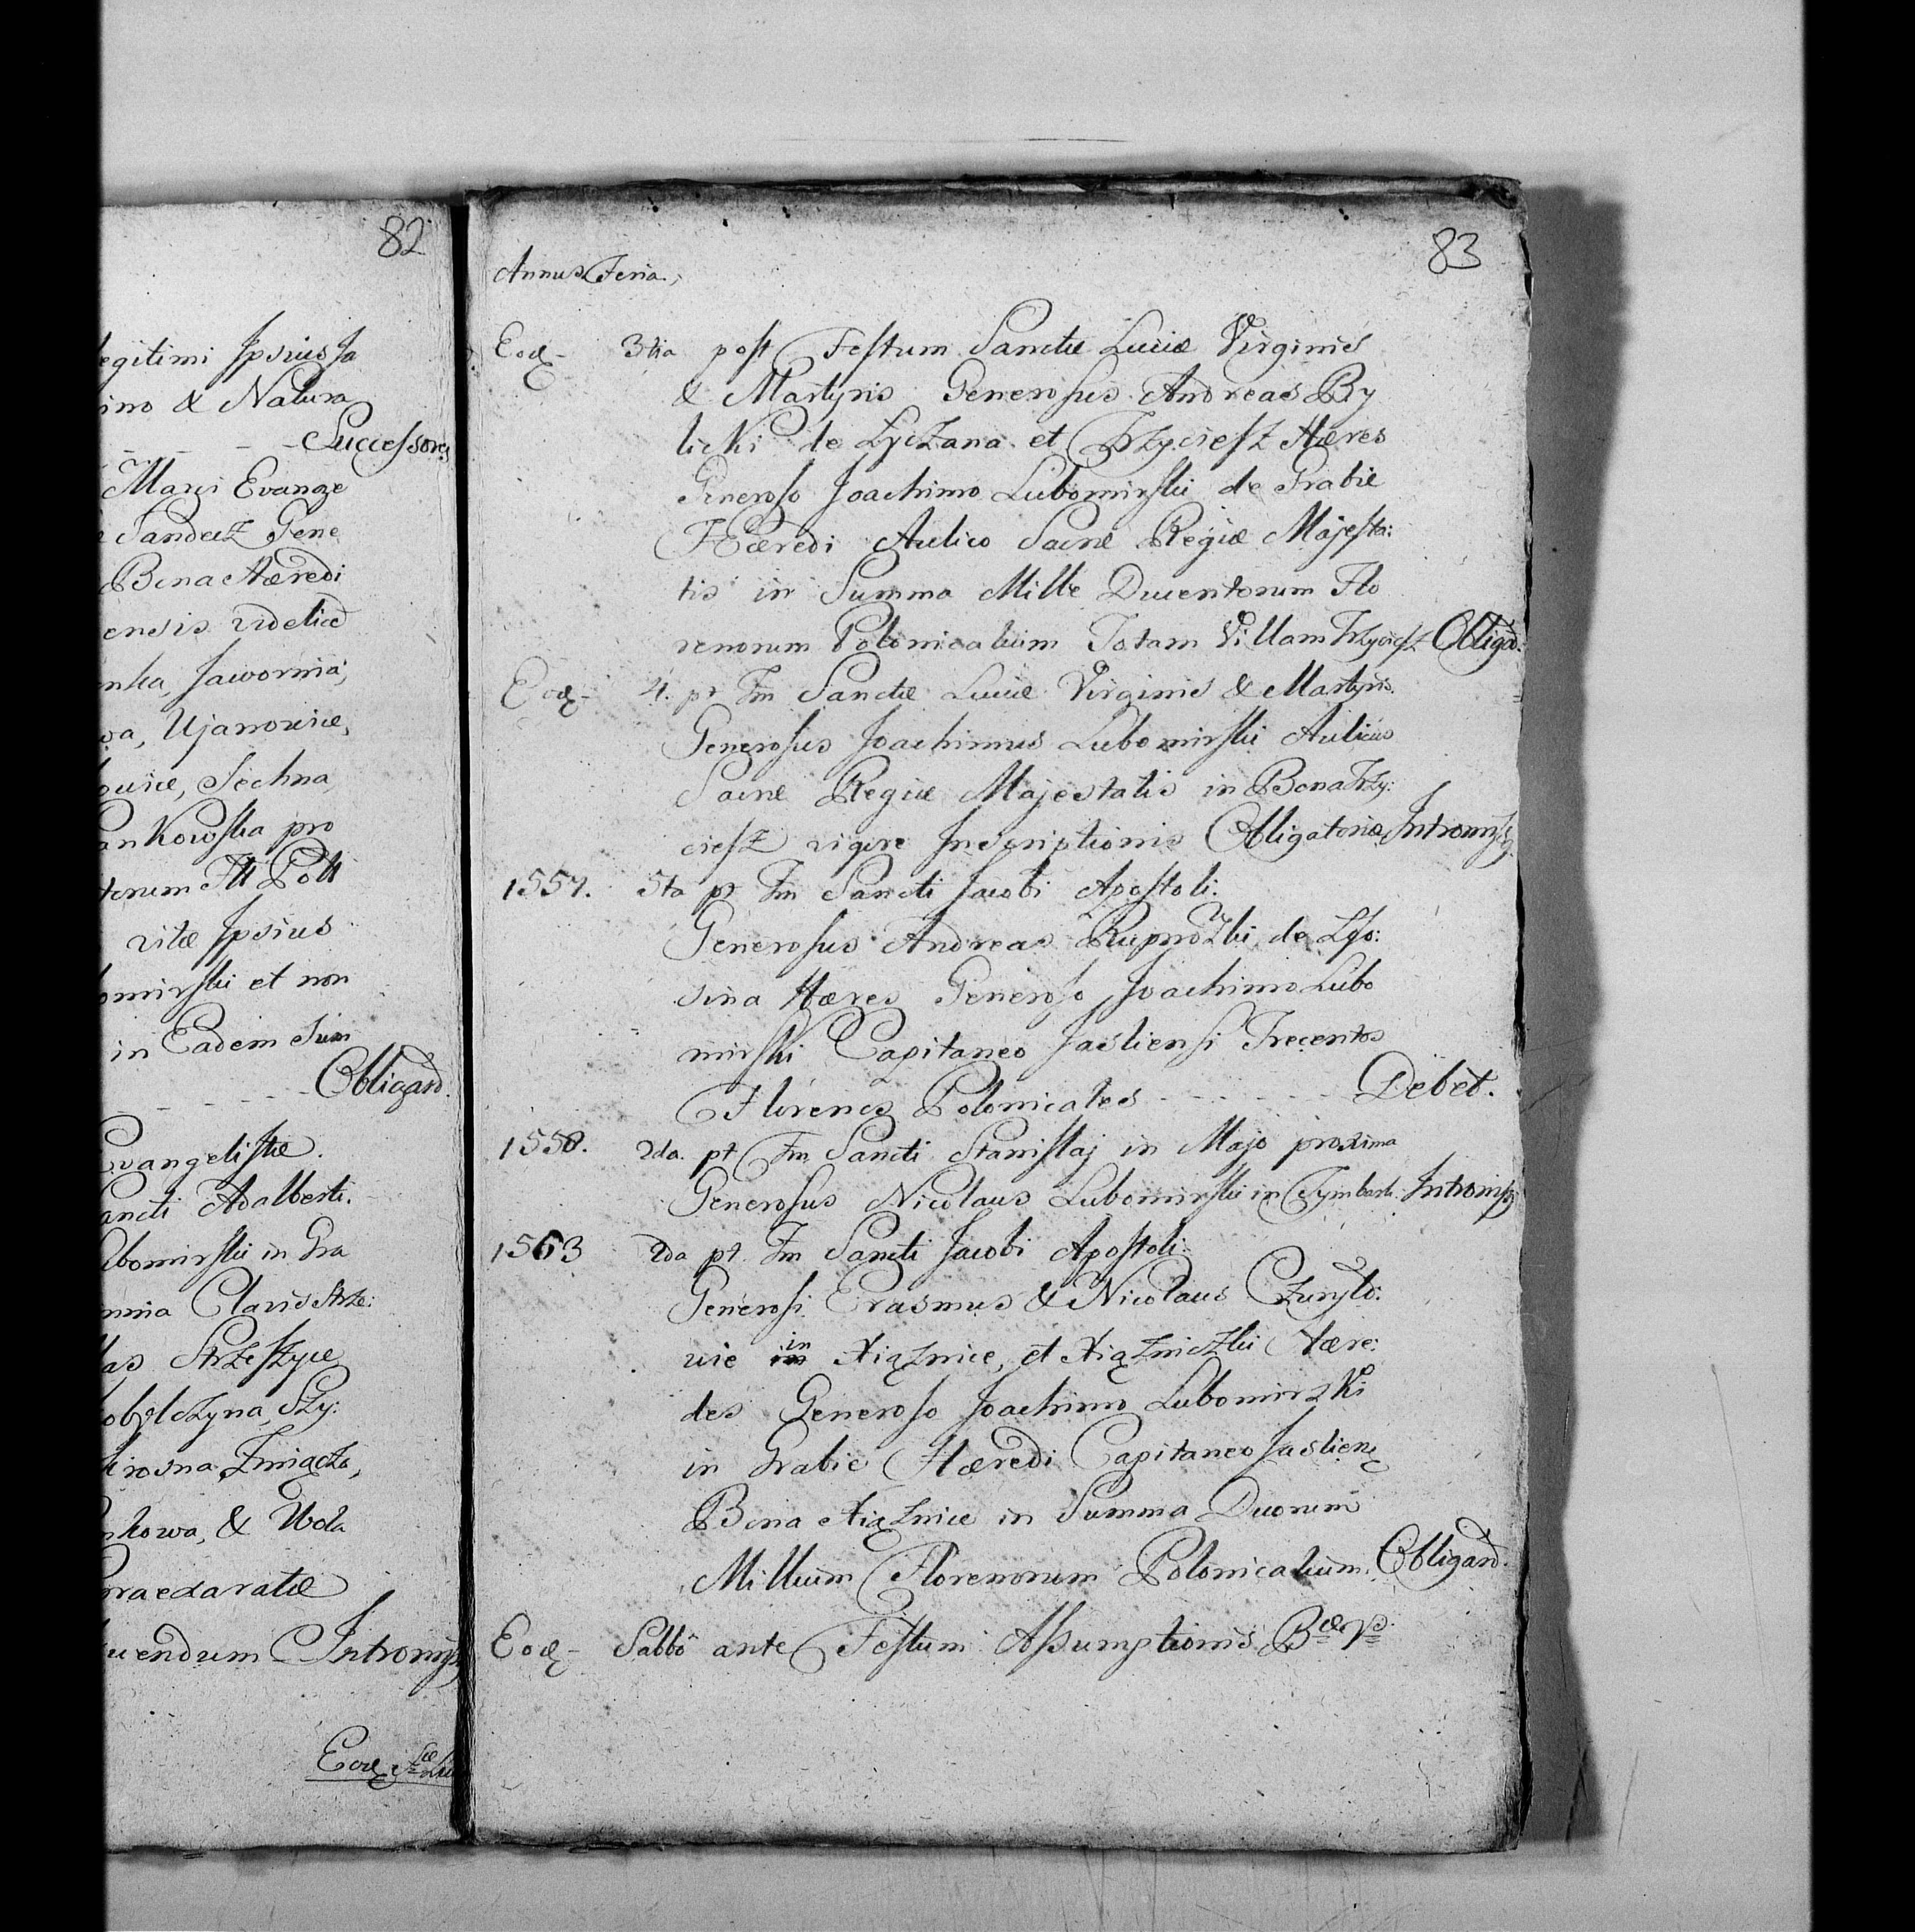 82
egitimi Ipsius Ja
ino & Natura
Successores
Marci Evange
Sandecz Gene
Bona Hæredi
ensis videlicet
nka, Jawornia,
wa, Ujanowice,
owice, Sechna,
ankowska pro
torum Fll Poll
vitæ Ipsius
omirski et non
in Eadem Sum
Obligand.
Evangelistæ.
ancti Adalberti.
ubomirski in Gra
mnia Clavis Strze:
las Strzeszyce
Szy:
rosna, Żmiącka,
nkowa, & Wola
Praedaratæ
uendum Intromis
Eod
83
Annus Feria.
Eod- 3tia post Festum Sanctæ Luciæ Virginis
& Martyris Generosus Andreas By
licki de Lyczana et Trzyciesz Hæres
Generoso Joachimo Lubomirski de Grabie
Hæredi Aulico Sacræ Regiæ Majesta:
tis in Summa Mille Ducentorum Flo
renorum Polonicalium Totam Villam Trzyciesz Obligd.
Eod- 4. pt Fm Sanctæ Luciæ Virginis & Martyris.
Generosus Joachimus Lubomirski Aulicus
Sacræ Regiæ Majestatis in Bona Trzy:
ciesz vigore Inscriptionis Obligatoriæ Intromiss
1557. 5ta pt Fm Sancti Jacobi Apostoli.
Generosus Andreas Rupnozki de Lso:
sina Hæres Generoso Joachimo Lubo
mirski Capitaneo Jasliensi Trecentos
Florenos Polonicales - - - - - - Debet.
1558. 2da. pt Fm Sancti Stanislaj in Majo proxima
Generosus Nicolaus Lubomirski in Tymbark. Intromiss
1563 2da pt. Fm Sancti Jacobi Apostoli.
Generosi Erasmus & Nicolaus Czuryło:
wie in Xiąznice, et Xiązniczki Hære:
des Generoso Joachimo Lubomirski
in Grabie Hæredi Capitaneo Jaslien
Bona Xiąznice in Summa Duorum
Millium Florenorum Polonicalium. Obligand.
Eod- Sabbô ante Festum Assumptionis Bæ Vs